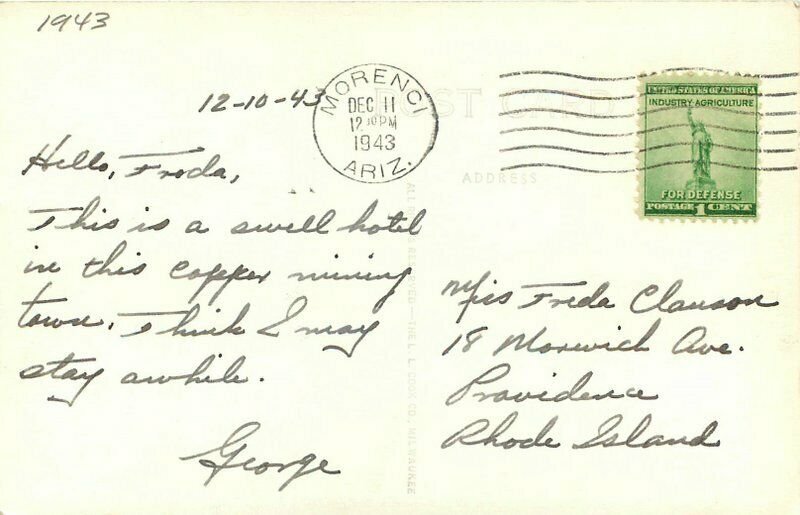 1943
12-10-43
MORENCI
DEC 11
12 30 PM
1943
ARIZ.
POST CARD
UNITED STATES OF AMERICA
INDUSTRY·AGRICULTURE
FOR DEFENSE
POSTAGE 1 CENT
ADDRESS
Hello, Freda,
This is a swell hotel
in this copper mining
town. Think I may
stay awhile.
George
ALL RIGHTS RESERVED—THE L. L. COOK CO., MILWAUKEE
Miss Freda Clauson
18 Norwich Ave.
Providence
Rhode Island